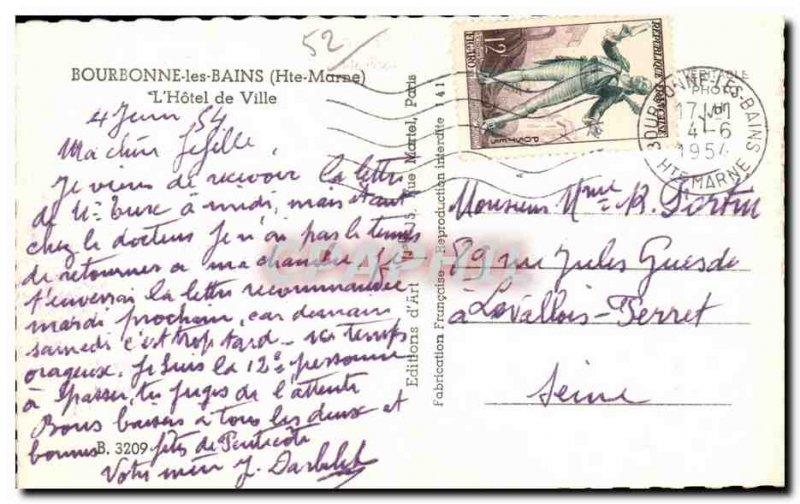 52/
BOURBONNE-les-BAINS (Hte-Marne)
L'Hôtel de Ville
4 Juin 54
Ma chère
Je viens de recevoir la lettre
de à midi, mais étant
chez le docteur Je n'ai pas le temps
de retourner a ma chambre Je
t'enverrai la lettre recommandée
mardi prochain, car demain
samedi c'est trop tard - temps
orageux. Je suis la 12e personne
à passer, tu juges de l'attente
Bons baisers à tous les deux et
bonnes fêtes de Pentecôte
B. 3209
Votre J.
Editions d'Art Rue Martel, Paris
Fabrication Française - Reproduction interdite 141
VÉRITABLE
PHOTO
12F
REPUBLIQUE FRANÇAISE
FIGARO
POSTES
BOURBONNE-LES-BAINS
17H
4-6
1954
HTE MARNE
Monsieur Mme R. Fortin
89 rue Jules Guesde
à Levallois-Perret
Seine
CPAPHIL